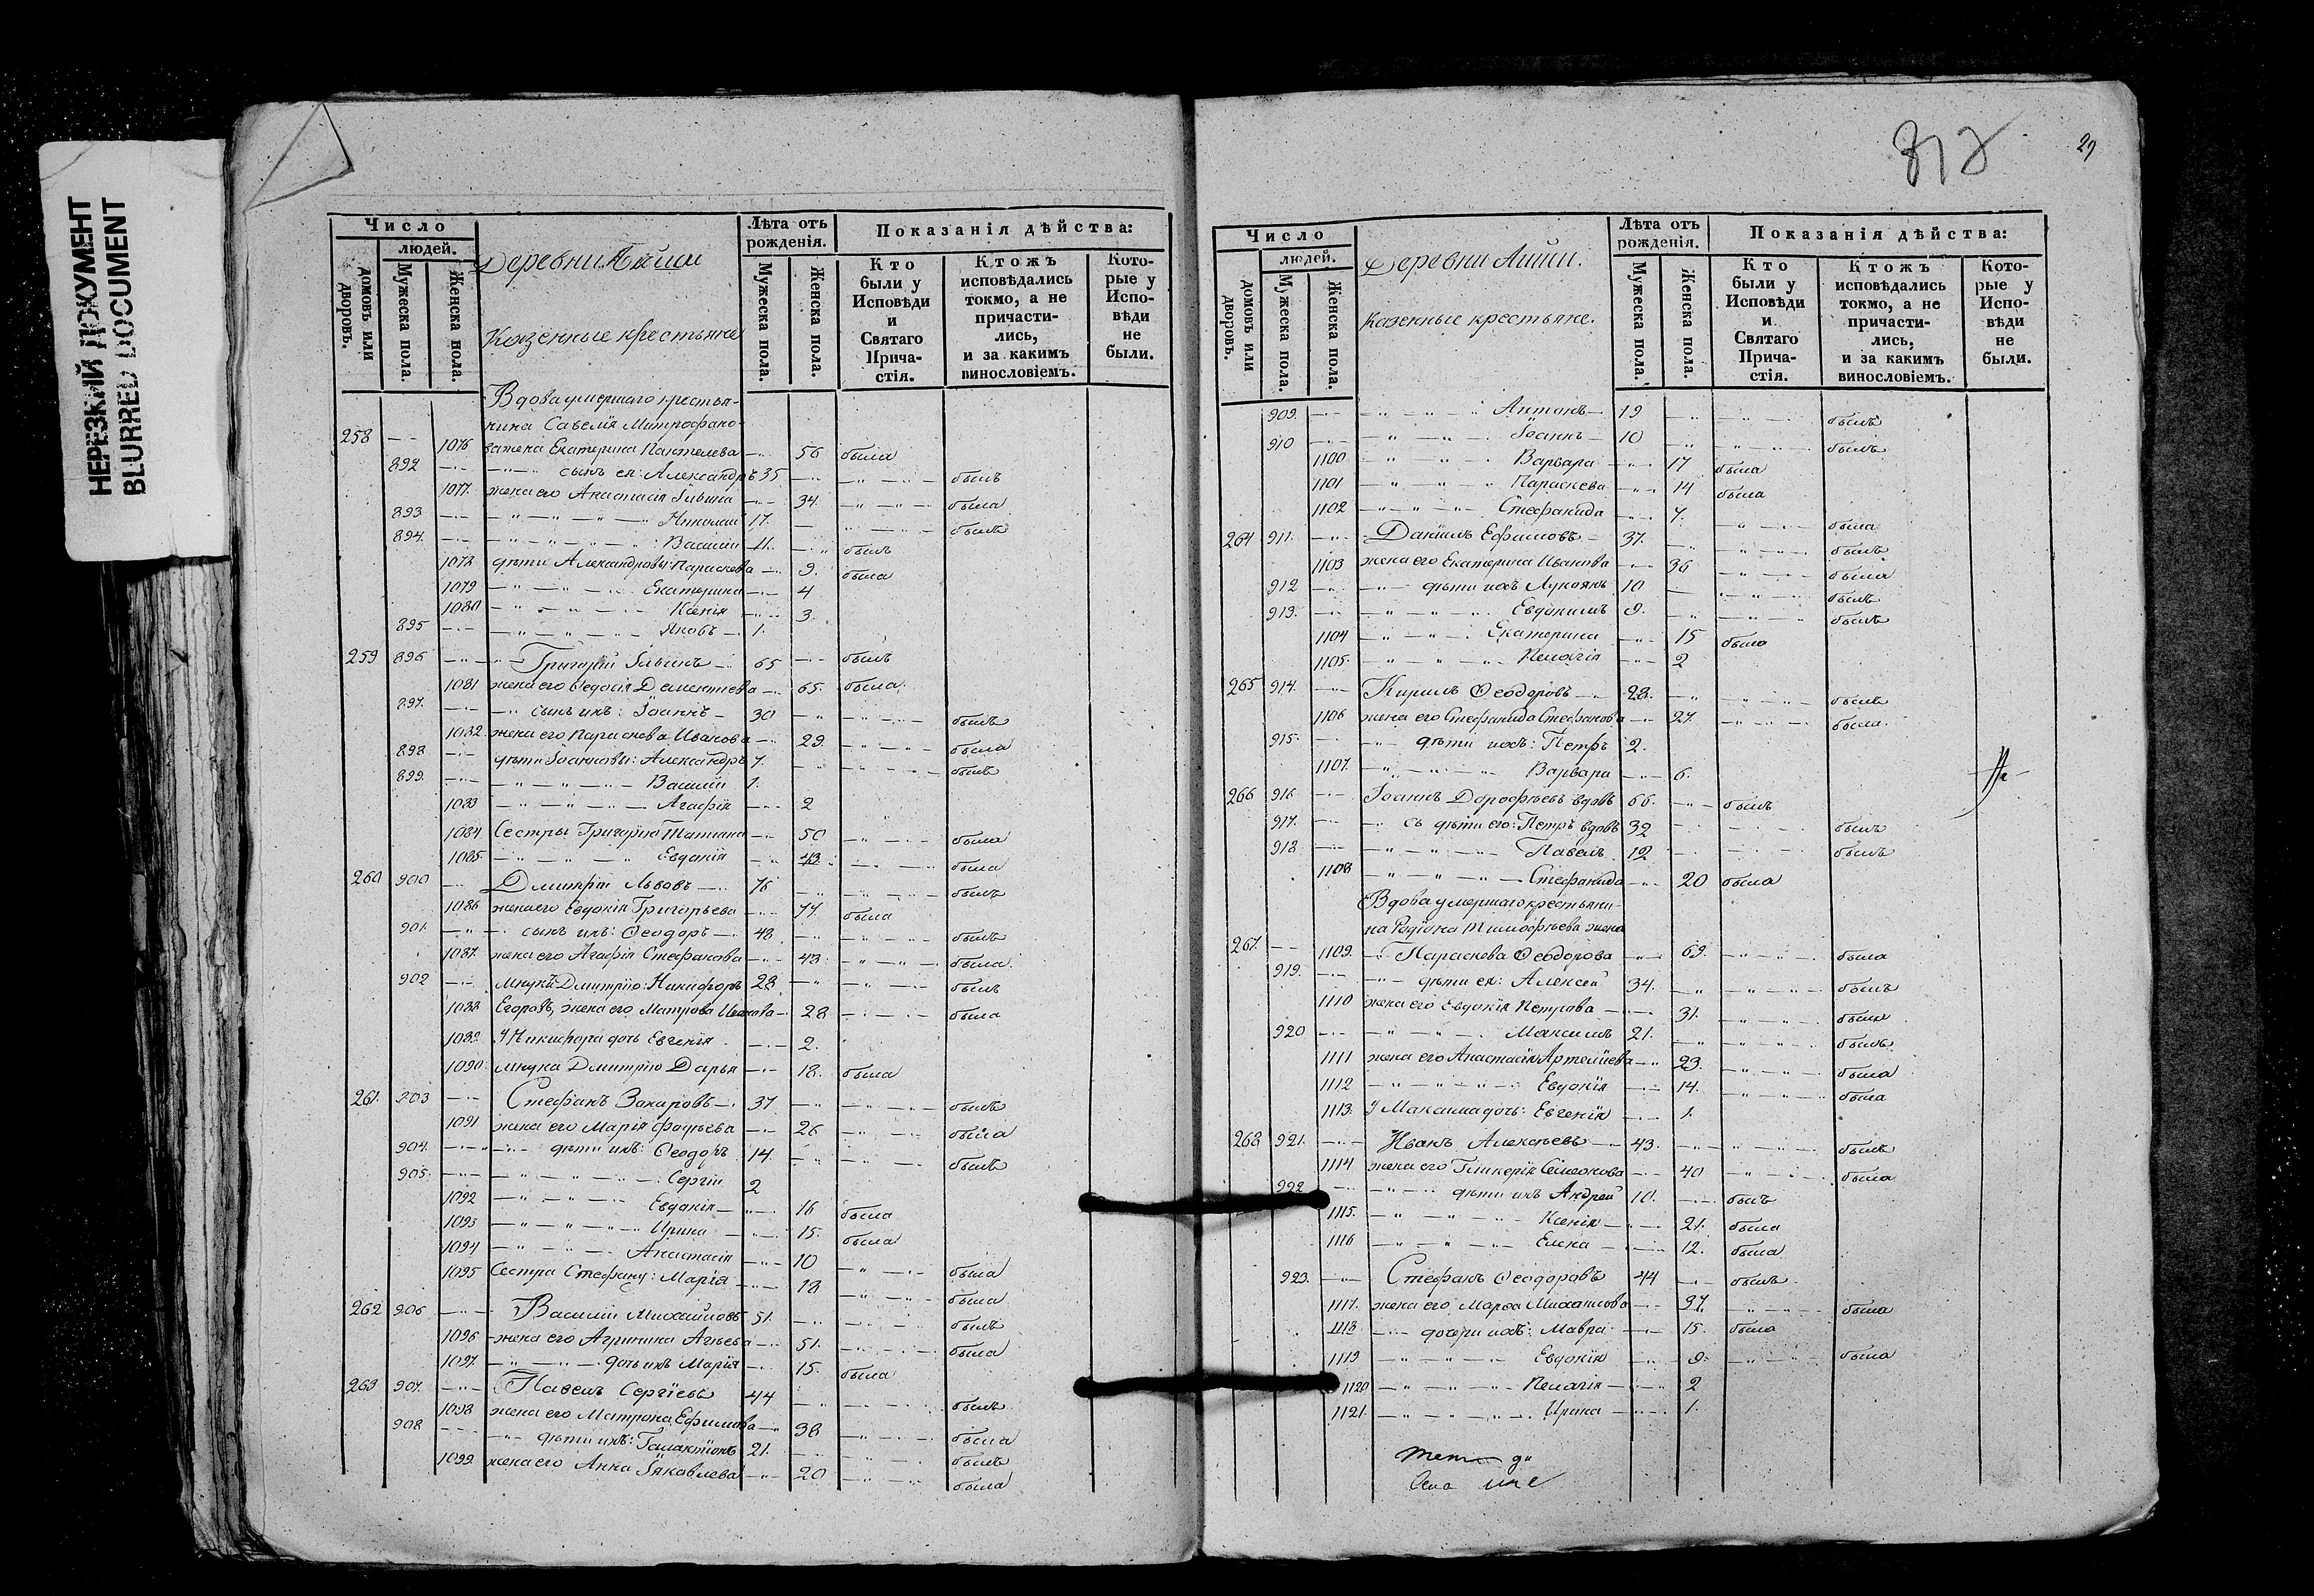 НЕРЕЗКИЙ ДОКУМЕНТ
BLURRED DOCUMENT
Число
людей.
домовъ или дворовъ.
Мужеска пола.
Женска пола.
Деревни
Казенные крестьяне
Лѣта отъ рожденія.
Мужеска пола.
Женска пола.
Показанія дѣйства:
Кто были у Исповѣди и Святаго Прича- стія.
Ктожъ исповѣдались токмо, а не причасти- лись, и за какимъ винословіемъ.
Кото- рые у Испо- вѣди не были.
Вдова умершаго крестья-
нина Савелія Митрофано-
258 1076 ва жена Екатерина Пантелева 56 была
892 сынъ ея: Александръ 35 былъ
1077. жена его Анастасія Ильина 34. была
893 Николай 17. былъ
894. Василій 11. былъ
1078 дѣти Александровы: Параскева 9. была
1079 Екатерина 4
1080 Ксенія 3.
895 Яковъ 1.
259 896 Григорій Ильинъ 65 былъ
1081 жена его Федосія Дементиева 65. была
897. сынъ ихъ: Іоаннъ 30 былъ
1082. жена его Параскева Иванова 29. была
898 дѣти Іоанновы: Александръ 7. былъ
899. Василій 1.
1083 Агафія 2
1084 Сестры Григорію Татиана 50 была
1085 Евдокія 43. была
260 900 Димитрій Львовъ 76 былъ
1086 жена его Евдокія Григорьева 77. была
901. сынъ ихъ: Ѳеодоръ 48 былъ
1087. жена его Агафія Стефанова 48 была
902 Димитрію: Никифоръ 28 былъ
1088 Егоровъ, жена его Матрона Иванова 28 была
1089 У Никифора дочь Евгенія 2.
1090 внука Димитрію Дарья 18. была
261. 903 Стефанъ Захаровъ 37 былъ
1091 жена его Марія Фадѣева 26 была
904. дѣти ихъ: Ѳеодоръ 14. былъ
905. Сергій 2
1092 Евдокія 16 была
1093 Ирина 15. была
1094 Анастасія 10 была
1095 Сестра Стефану: Марія 18 была
262 906 Василій Михайловъ 51. былъ
1096 жена его Агрипина 51. была
1097. дочь ихъ Марія 15. была
263 907. Павелъ Сергіевъ 44 былъ
1098 жена его Матрона Ефимова 38 была
908 дѣти ихъ: Галактіонъ 21. былъ
1099 жена его Анна Іаковлева 20 была
29
Число
людей.
домовъ или дворовъ.
Мужеска пола.
Женска пола.
Деревни
Казенные крестьяне.
Лѣта отъ рожденія.
Мужеска пола.
Женска пола.
Показанія дѣйства:
Кто были у Исповѣди и Святаго Прича- стія.
Ктожъ исповѣдались токмо, а не причасти- лись, и за какимъ винословіемъ.
Кото- рые у Испо- вѣди не были.
909. Антонъ 19 былъ
910 Іоаннъ 10 былъ
1100 Варвара 17 была
1101 Параскева 14 была
1102 Стефанида 7. была
264 911. Даніилъ Ефимовъ 37. былъ
1103 жена его Екатерина Иванова 36 была
912 дѣти ихъ Лукоянъ 10 былъ
913. Евдокимъ 9. былъ
1104 Екатерина 15 была
1105. Пелагія 2
265 914. Кирилъ Ѳеодоровъ 28. былъ
1106 жена его Стефанида Стефанова 27. была.
915. дѣти ихъ: Петръ 2.
1107. Варвара 6.
266 916 Іоаннъ Дорофѣевъ вдовъ 66. былъ
917. дѣти его: Петръ вдовъ 32 былъ
918 Павелъ 12 былъ
1108 Стефанида 20 была
Вдова умершаго крестьяни-
на Родіона Тимофѣева жена
267. 1109. Параскева Ѳеодорова 69. была
919. дѣти ея: Алексей 34. былъ
1110 жена его Евдокія Петрова 31. была
920 Максимъ 21. былъ
1111 жена его Анастасія 23. была
1112 Евдокія 14. была
1113. У Максима дочь: Евгенія 1.
268 921. Иванъ Алексѣевъ 43. былъ
1114 жена его Гликерія Симеонова 40 была
922 дѣти ихъ Андрей 10. былъ
1115. Ксенія 21. была
1116 Елена 12. была
923. Стефанъ Ѳеодоровъ 44 былъ
1117. жена его Марѳа Михаилова 37. была
1118 дочери ихъ: Мавра 15. была
1119 Евдокія 9. была
1120 Пелагія 2
1121. Ирина 1.